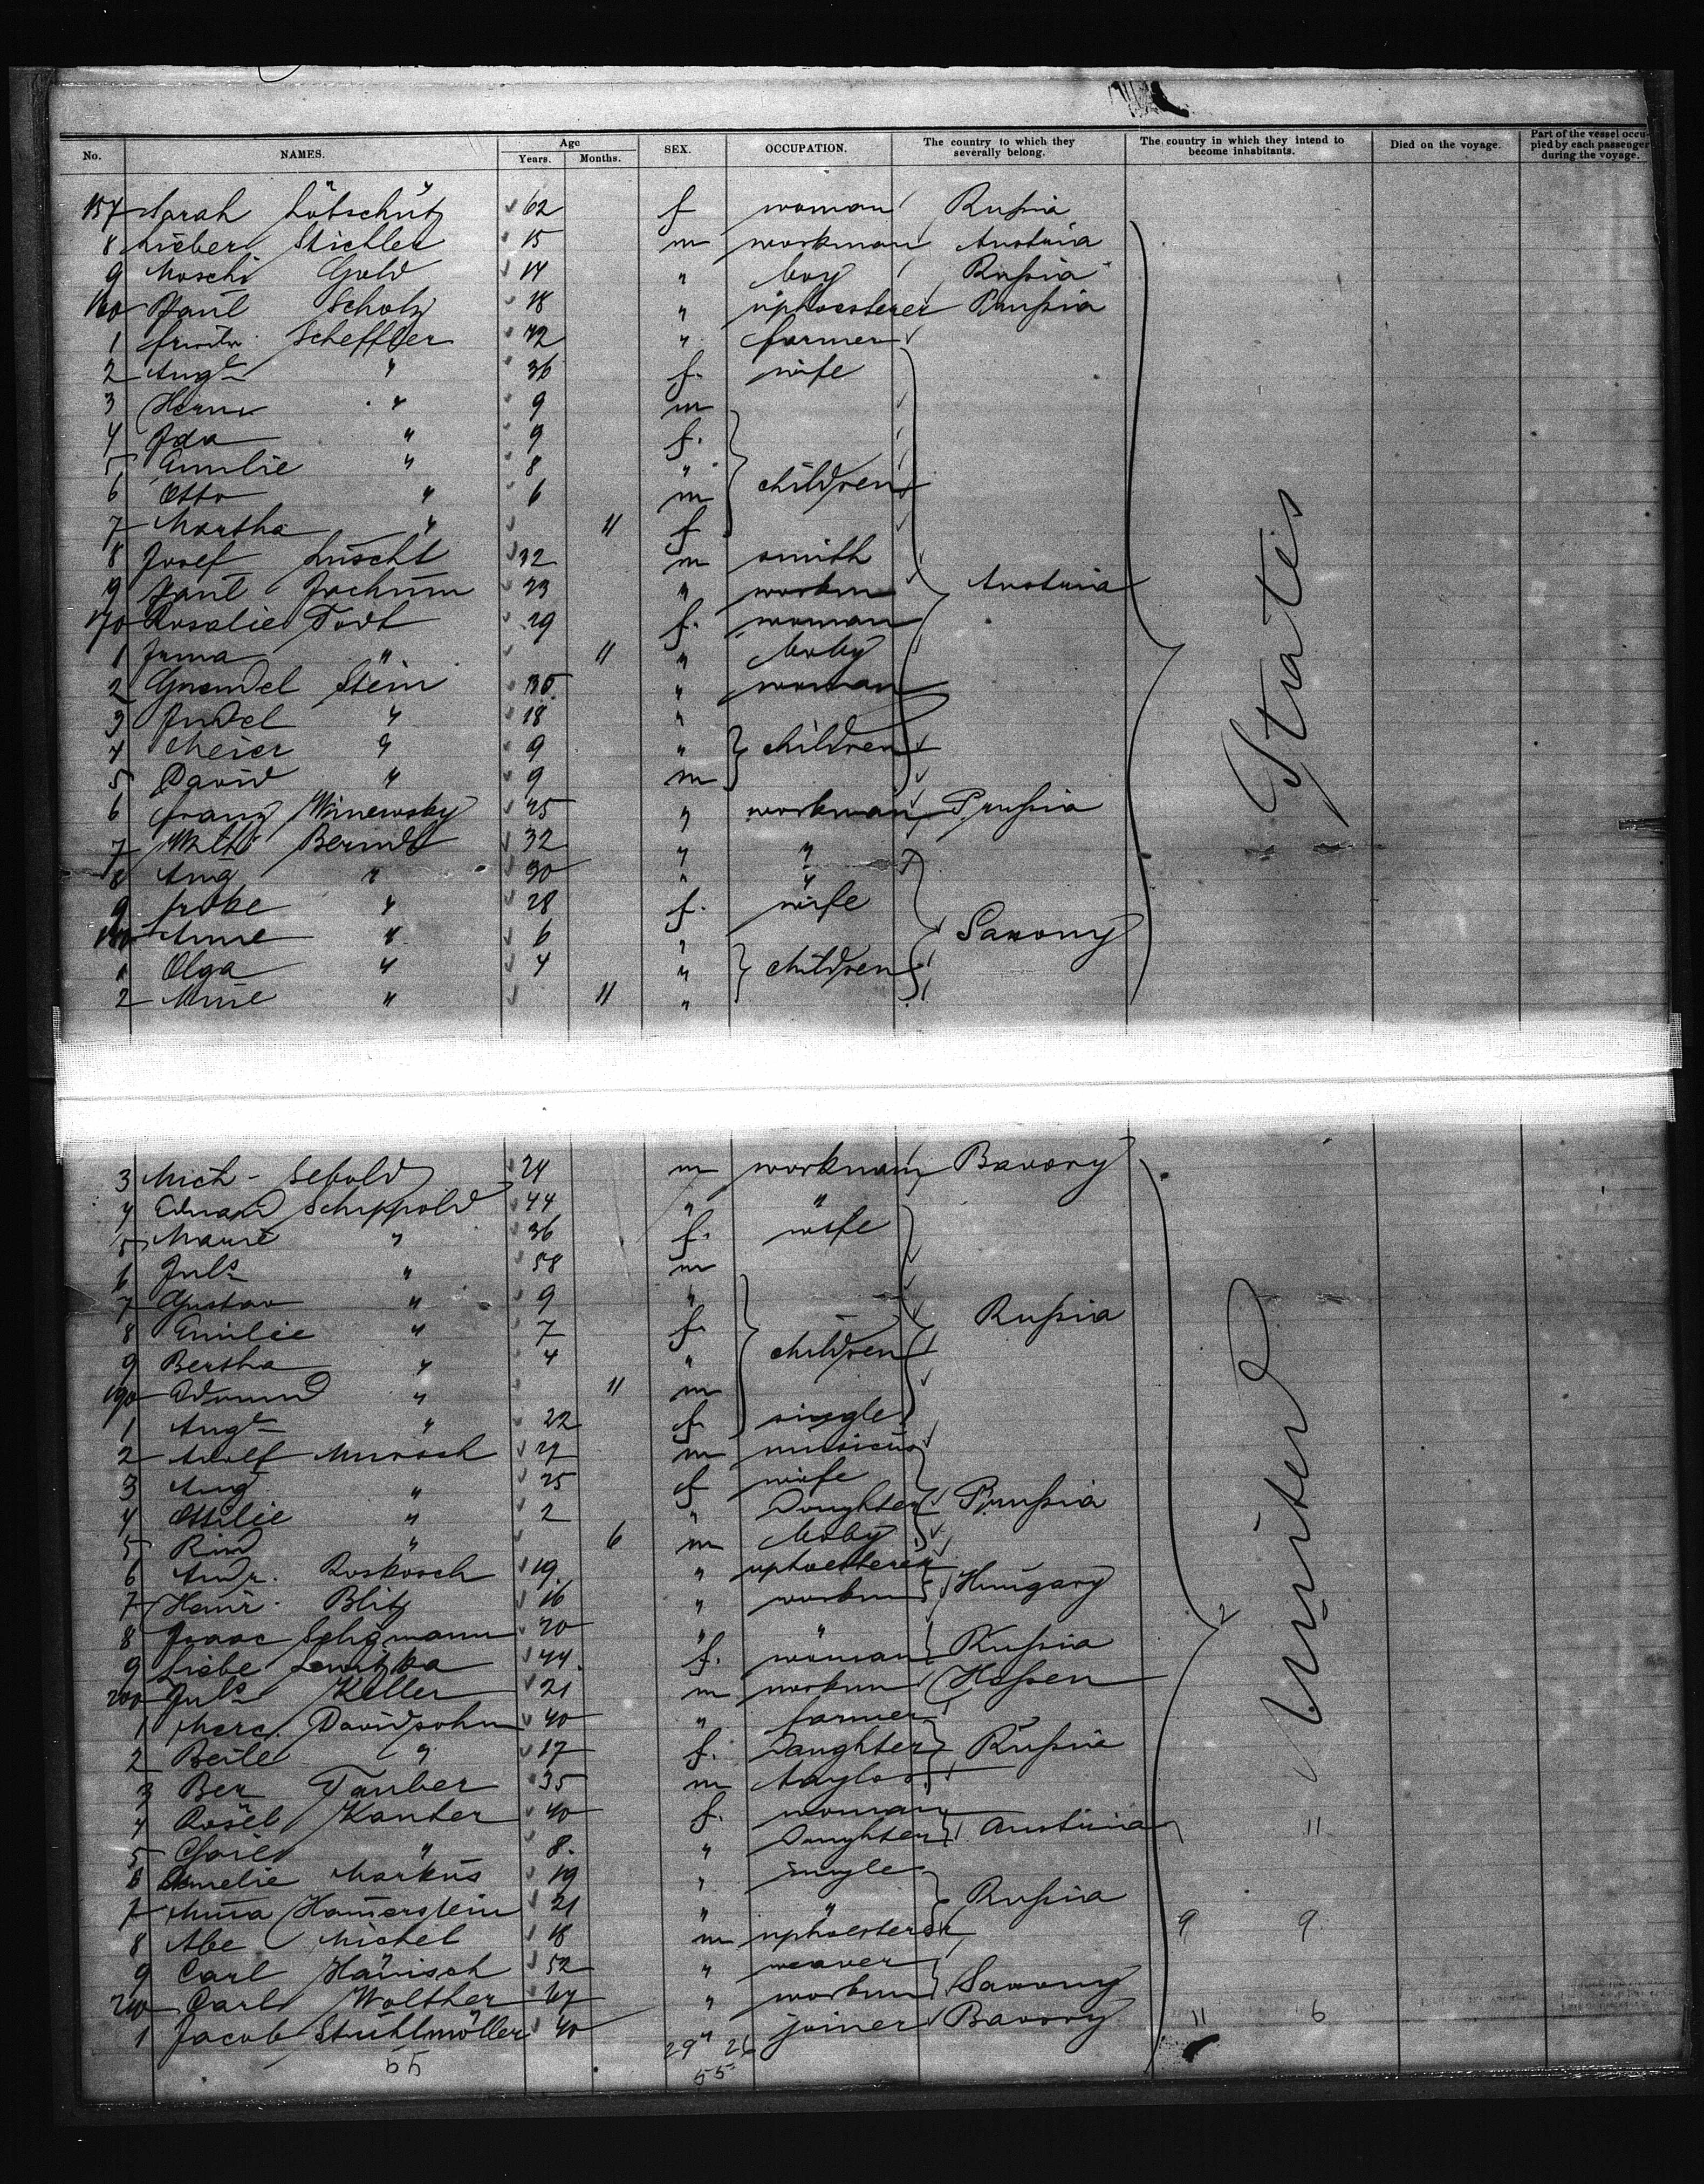 No. NAMES. Age Years. Months. SEX. OCCUPATION. The country to which they severally belong. The country in which they intend to become inhabitants. Died on the voyage. Part of the vessel occupied by each passenger during the voyage.
157 Sarah Lötschütz 62 f woman Rußia
8 Lieber Stichler 15 m workman Austria
9 Moschi Gold 14 " boy Rußia
160 Paul Scholz 18 " uphoesterer Prußia
1 Scheffler " farmer
2 Auge " 36 f. wife
3 Herm " 9 m
4 Ida " 9 f.
5 Emilie " 8 "
6 Otto " 6 m children
7 Martha " 11 f
8 Josef Luscht 32 m smith
9 Paul Jochum 23 " workm Austria
170 Rosalie Todt 29 f. woman
1 " 11 " baby
2 Stein " woman
3 Judel " 18 "
4 Meier " 9 " children
5 David " 9 m
6 Franz Winewsky 25 " workman Prußia
7 Berndt 32 " "
8 Aug " 30 " "
9 " 28 f. wife
180 Anne " 6 " Saxony
1 Olga " 4 " children
2 " 11 "
States
3 Mich Sebold 24 m workman Bavary
4 Eduard Schippold 44 " "
5 " 36 f. wife
6 Juls " 58 m
7 Gustav " 9 "
8 Emilie " 7 f. Rußia
9 Bertha " 4 " children
190 Edmund " 11 m
1 Auge " 22 f. single
2 Adolf 27 m musicus
3 Aug " 25 f wife
4 Ottilie " 2 " Doughter Prußia
5 " 6 m baby
6 Andr. Roskosch 19 " uphoesterer
7 Heinr. Blitz 16 " workm Hungary
8 Isaac Seligmann 20 " "
9 Liebe Lewitzka 44 f. woman Rußia
200 Juls Keller 21 m workm Heßen
1 Marc. Davidsohn 40 " farmer
2 Beile " 17 f. Daughter Rußia
3 Ber Tauber 35 m taylor
4 Rosel Kanter 40 f. woman
5 " 8. " Doughter Austria 11
6 Amelie Markus 19 " single
7 Hamerstein 21 " " Rußia
8 Abe Michel 18 m uphoesterer 9 9
9 Carl Hänisch 52 " weaver
210 Carl Wolther 67 " workm Saxony
1 Jacob Stuhlmöller 40 " joiner Bavary 11 6
United
55 29 26
55